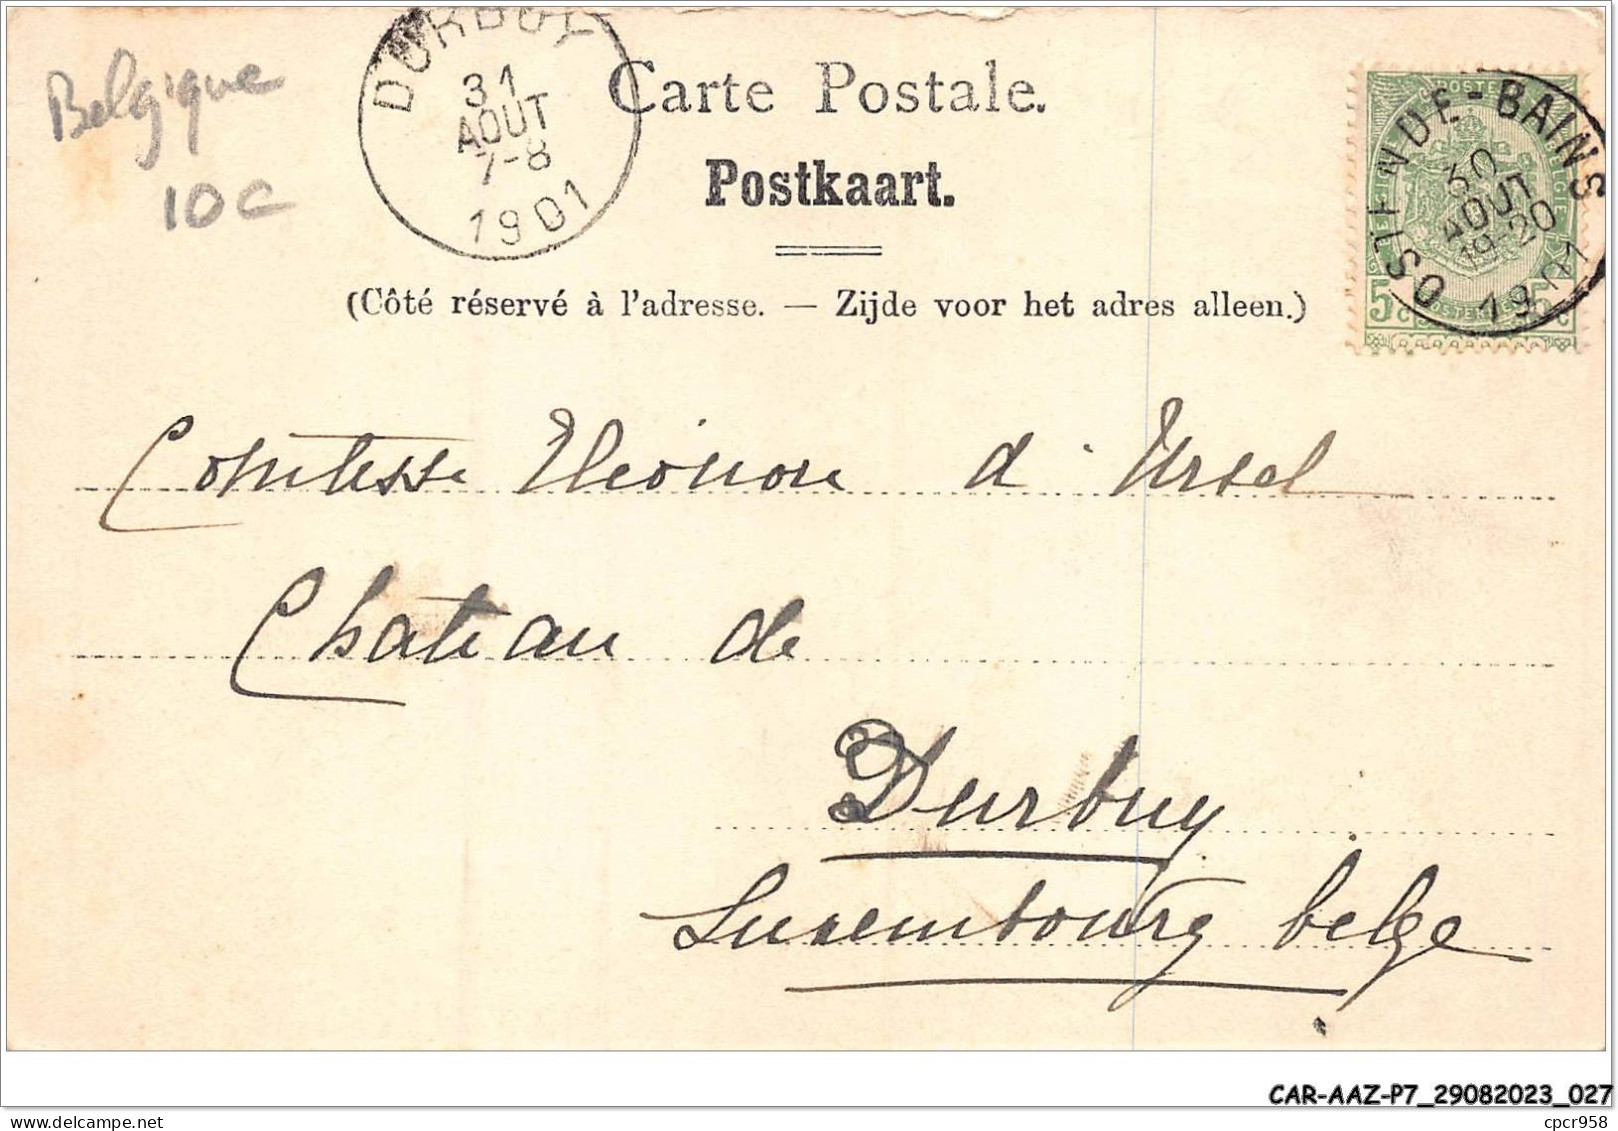 Belgique
10c
DURBUY
31
AOUT
7-8
1901
Carte Postale.
Postkaart.
(Côté réservé à l'adresse. — Zijde voor het adres alleen.)
OSTENDE-BAINS
30
AOUT
19-20
1901
5c
Comtesse Eléonore d'Ursel
Chateau de
Durbuy
Luxembourg belge
CAR-AAZ-P7_29082023_027
cpcr958